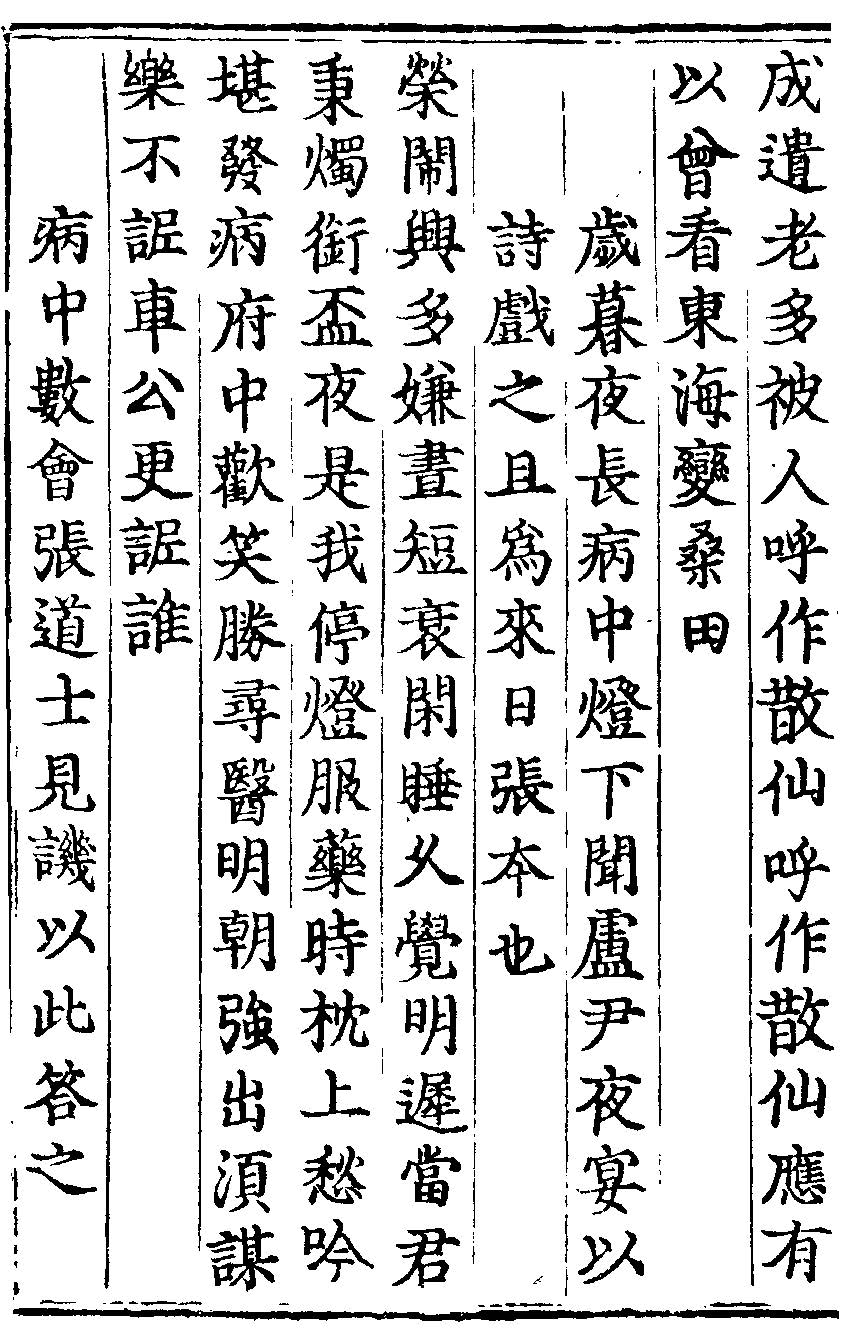 成遺老多被人呼作散仙呼作散仙應有
以曾看東海變桑田
歲暮夜長病中燈下聞盧尹夜宴以
詩戲之且爲來日張本也
榮鬧興多嫌晝短衰閑睡少覺明遲當君
秉燭銜盃夜是我停燈服藥時枕上愁吟
堪發病府中歡笑勝尋醫明朝強出湏謀
樂不詎車公更詎誰
病中數會張道士見譏以此答之